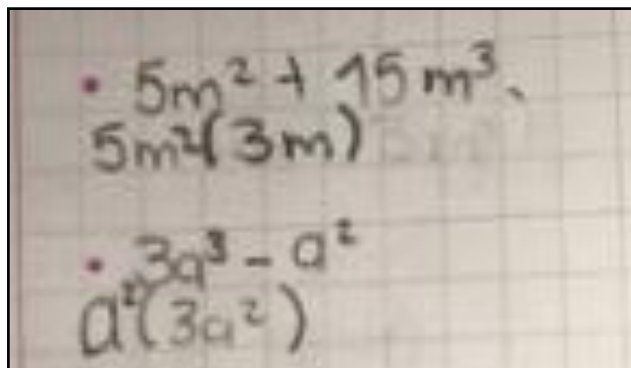 • 5m² + 15m³、
5m²(3m)
• 3a³ - a²
a²(3a²)